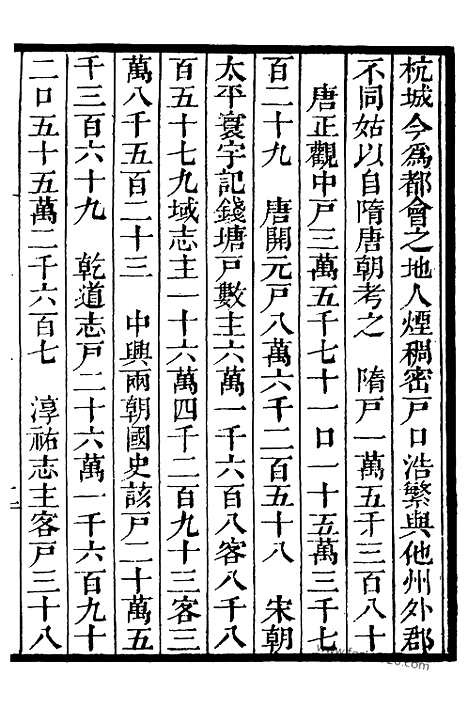 杭城今爲都會之地人煙稠密戸口浩繁與他州外郡
不同姑以自隋唐朝考之　隋戸一萬五千三百八十
唐正觀中戸三萬五千七十一口一十五萬三千七
百二十九　唐開元戸八萬六千二百五十八　宋朝
太平寰宇記錢塘戸數主六萬一千六百八客八千八
百五十七九域志主一十六萬四千二百九十三客三
萬八千五百二十三　中興兩朝國史該戸二十萬五
千三百六十九　乾道志戸二十六萬一千六百九十
二口五十五萬二千六百七　淳祐志主客戸三十八